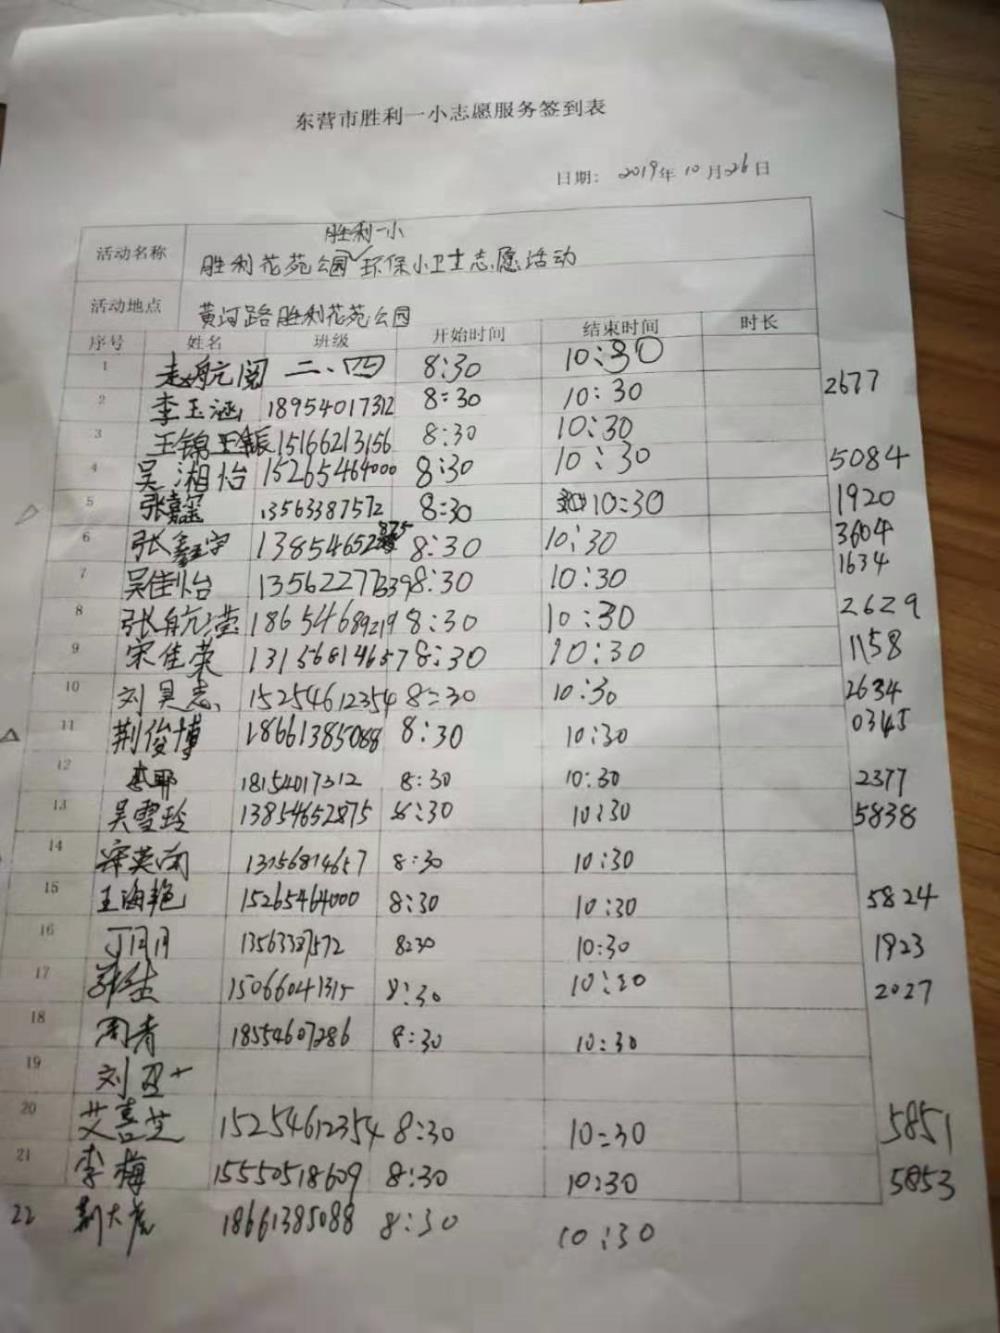 东营市胜利一小志愿服务签到表
日期: 2019年10月26日
胜利一小
活动名称 胜利花苑公园环保小卫士志愿活动
活动地点 黄河路胜利花苑公园
序号 姓名 班级 开始时间 结束时间 时长
1 航阅 二.四 8:30 10:30
2 李玉涵 18954017312 8:30 10:30 2677
3 王锦 15166213156 8:30 10:30
4 吴湘怡 15265464000 8:30 10:30 5084
5 张嘉 13563387572 8:30 10:30 1920
6 张鑫宇 8:30 10:30 3604
7 吴佳怡 8:30 10:30 1634
8 张航滢 18654689219 8:30 10:30 2629
9 宋佳荣 13156814657 8:30 10:30 1158
10 刘昊志 15254612354 8:30 10:30 2634
11 荆俊博 18661385088 8:30 10:30 0345
12 18154017312 8:30 10:30 2377
13 吴雪玲 13854652875 8:30 10:30 5838
14 8:30 10:30
15 王海艳 15265464000 8:30 10:30 5824
16 丁月月 13563387572 8:30 10:30 1923
17 15066041315 8:30 2027
18 周青 18554607286 8:30 10:30
19 刘
20 艾喜芝 15254612354 8:30 10:30 5851
21 李梅 15550518609 8:30 10:30 5853
22 荆大虎 18661385088 8:30 10:30